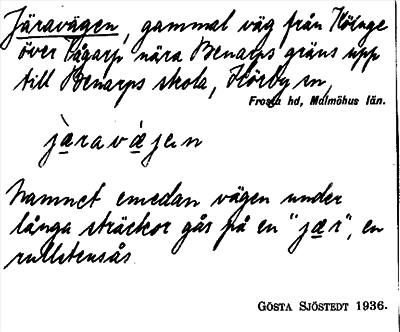 Järavägen, gammal väg från Höinge
över Pågarp nära Benarps gräns upp
till Benarps skola, Hörby sn,
Frosta hd, Malmöhus län.
jæravæjen
Namnet emedan vägen under
långa sträckor går på en "jær", en
rullstensås.
GÖSTA SJÖSTEDT 1936.